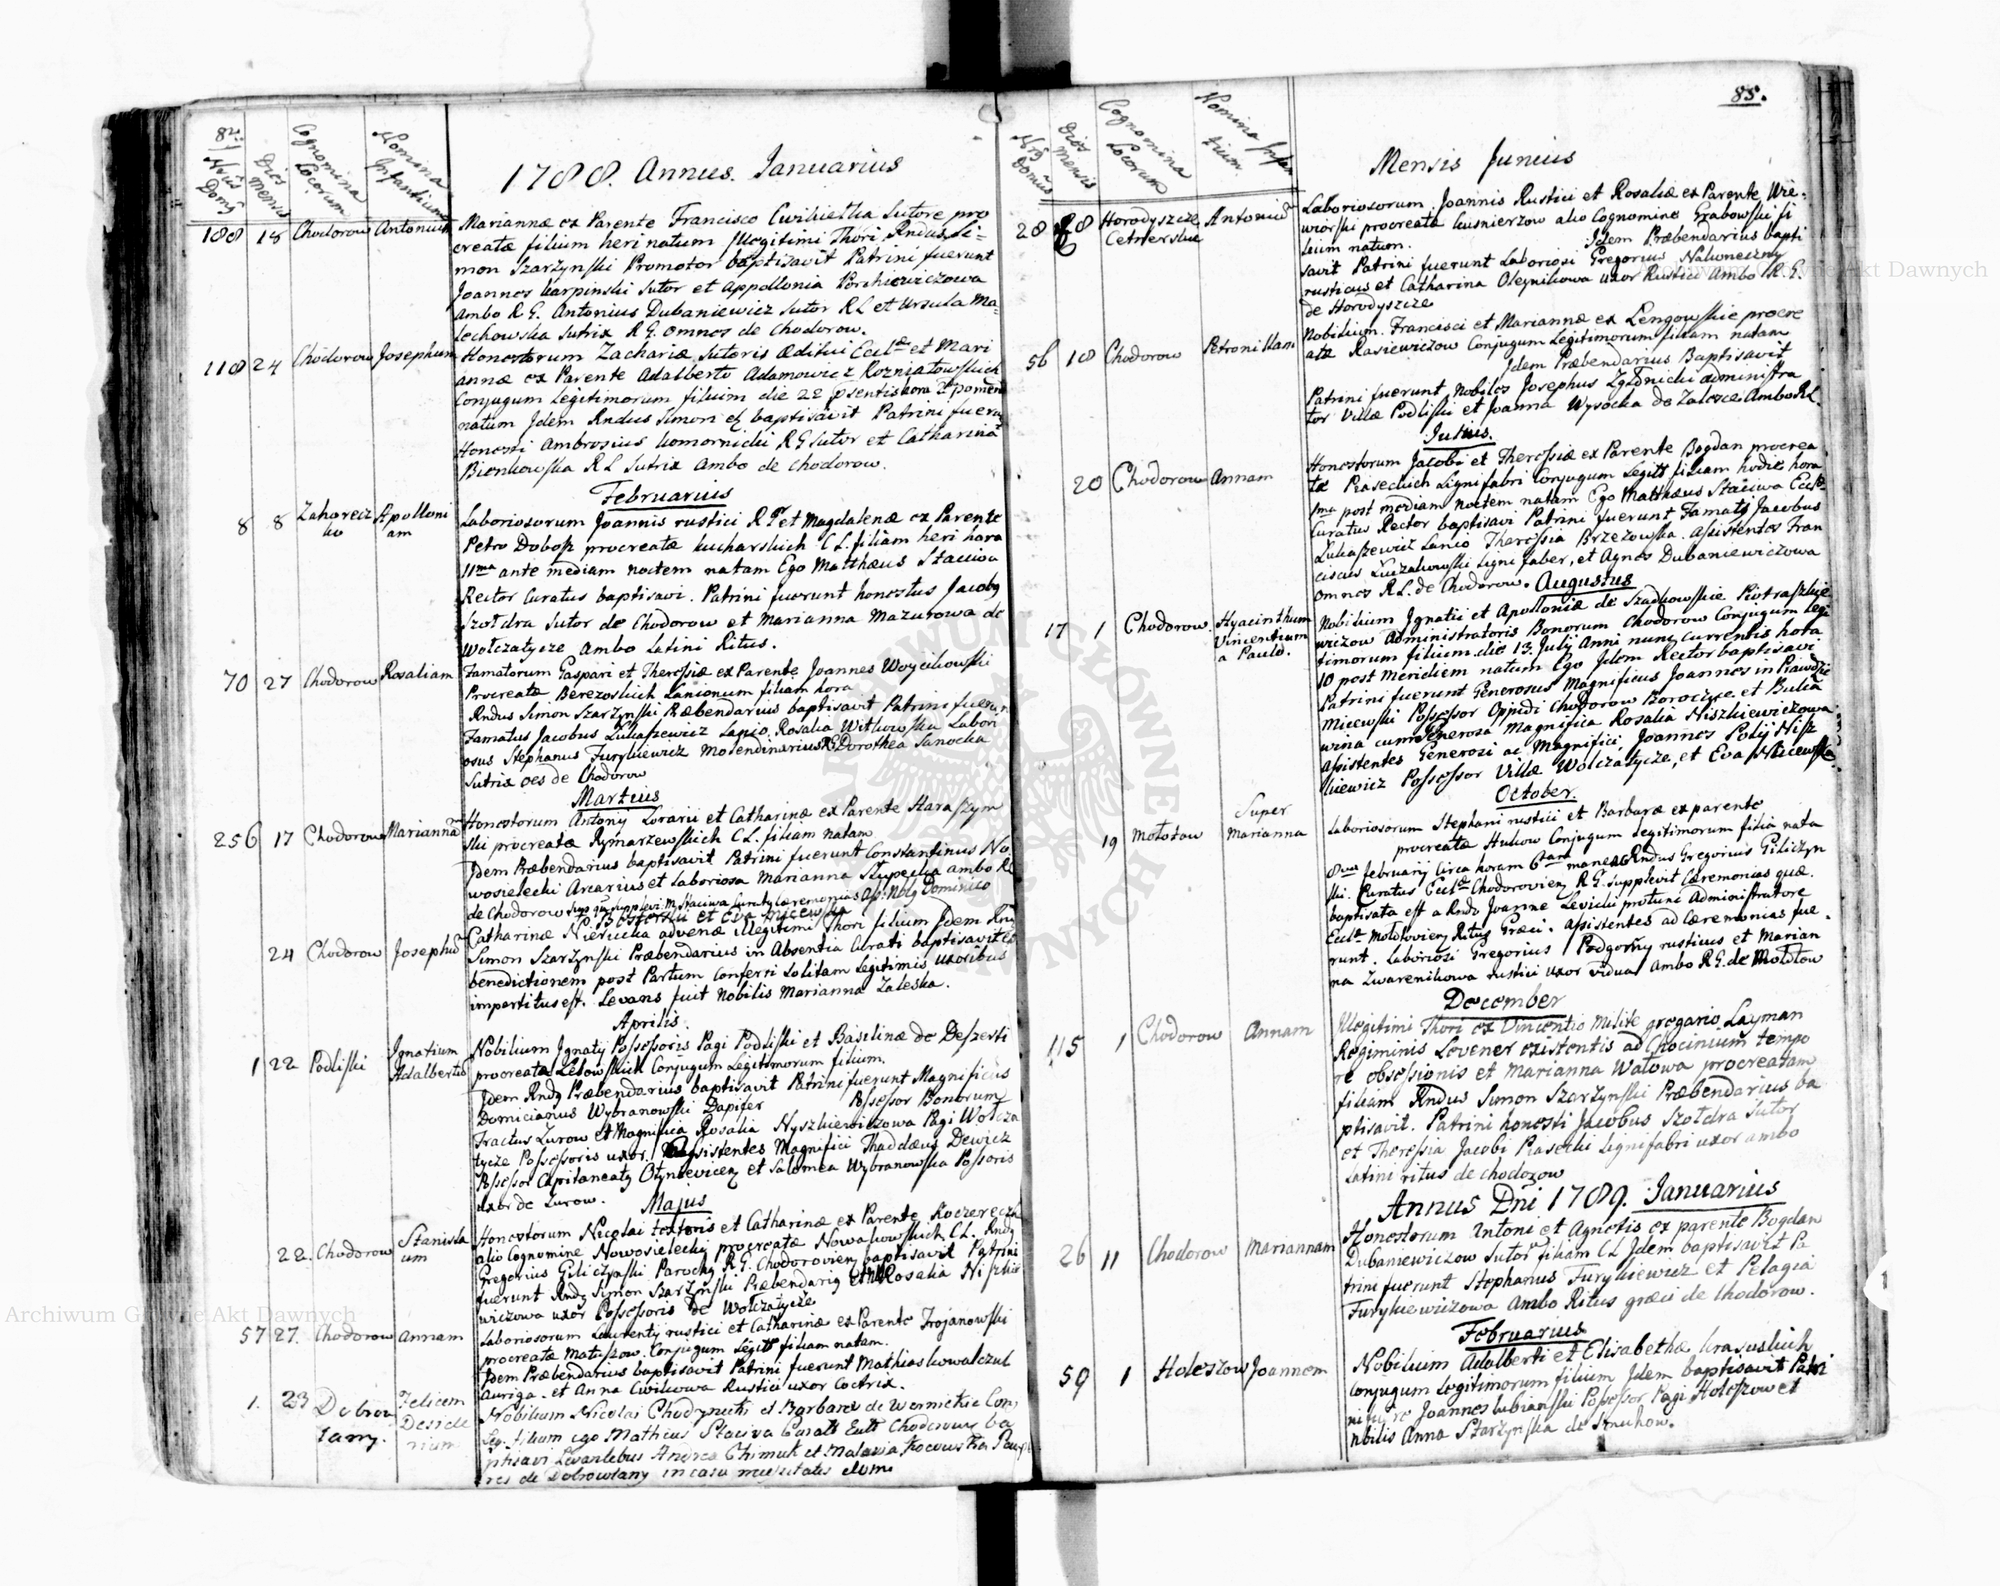 84.
Nrus Domus
Dies mensis
Cognomina Locorum
Nomina Infantium
1788. Annus. Januarius
188 15 Chodorow Antonium
Mariannæ ex Parente Francisco Cwikietka Sutore pro
creatæ filium heri natum Illegitimi Thori Rndus Si=
mon Szarzynski Promotor baptisavit Patrini fuerunt
Joannes Karpinski Sutor et Appollonia
Ambo R G. Antonius Dubaniewicz Sutor R L et Ursula Ma=
lechowska Sutrix R G. omnes de Chodorow.
118 24 Chodorow Josephum
Honestorum Zachariæ Sutoris Æditui Eccl et Mari
annæ ex Parente Adalberto Adamowicz Rozniatowskich
Conjugum Legitimorum filium die 22 psentis hora 2 pomerid
natum Idem Rndus Simon baptisavit Patrini fuerunt
Honesti Ambrosius Komornicki R G Sutor et Catharina
Bienkowska R L Sutrix Ambo de Chodorow.
Februarius
8 8 Zaharecz ko Apolloni am
Laboriosorum Joannis rustici R et Magdalenæ ex Parente
Petro Dobosz procreatæ Kucharskich C L. filiam heri hora
11ma ante mediam noctem natam Ego Matthæus Staciwa
Rector Curatus baptisavi. Patrini fuerunt honestus Jacobus
Szoldra Sutor de Chodorow et Marianna Mazurowa de
Wolczatycze Ambo Latini Ritus.
70 27 Chodorow Rosaliam
Famatorum Gaspari et Theresiæ ex Parente Joannes Woycikowski
Procreatæ Berezoskich Lanionum filiam hora
Rndus Simon Szarzynski Præbendarius baptisavit Patrini fuerun
Famatus Jacobus Lukaszewicz Lanio, Rosalia Witkowska Labori
osus Stephanus Furykiewicz Molendinarius RG Dorothea Sanocka
Sutrix oes de Chodorow
Martius
256 17 Chodorow Mariannam
Honestorum Antony Lorarii et Catharinæ ex Parente Staraszym
ski procreatæ Rymarzewskich C L. filiam natam
Idem Præbendarius baptisavit Patrini fuerunt Constantinus No
wosielecki Arcarius et Laboriosa Marianna Slupecka ambo RL
de Chodorow Supplevi M Staciwa Curatus Cæremonias Dominico
et Eva Micewska
24 Chodorow Josephum
Catharinæ Nierucka advenæ illegitimi Thori filium Idem Rndus
Simon Szarzynski Præbendarius in Absentia Curati baptisavit et
benedictionem post Partum conferri Solitam Legitimis uxoribus
impertitus est. Levans fuit Nobilis Marianna Zaleska.
Aprilis.
1 22 Podliski Ignatium Adalbertum
Nobilium Ignaty Possessoris Pagi Podliski et Basilinæ de Deszerti
procreatæ Letowskich Conjugum Legitimorum filium.
Idem Rndus Præbendarius baptisavit Patrini fuerunt Magnificus
Domicianus Wybranowski Dapifer Possessor Bonorum
Tractus Zurow et Magnifica Rosalia Nyszkiewiczowa Pagi Wolcza
tycze Possessoris uxor. Assistentes Magnifici Thaddæus Dewicz
Possessor Capitaneaty Otyneviceń et Salomea Wybranowska Possoris
uxor de Zurow.
Majus
22. Chodorow Stanisla um
Honestorum Nicolai textoris et Catharinæ ex Parente Koczerecza
alio Cognomine Nowosielecky procreatæ Nowakowskich C L. Rndus
Gregorius Giliczynski Parochus R G. Chodorovien baptisavit Patrini
fuerunt Rndus Simon Szarzynski Præbendarius et Rosalia Niszkie
wiczowa uxor Possessoris de Wolczatycze
57 27. Chodorow Annam
Laboriosorum Laurenty rustici et Catharinæ ex Parente Trojanowski
procreatæ Matuszow. Conjugum Legitt filiam natam.
Idem Præbendarius baptisavit Patrini fuerunt Mathias Kowalczuk
Auriga. et Anna Cwikowa Rustici uxor Coctrix.
1. 23 Dobrow lany. Felicem Deside rium
Nobilium Nicolai Chodynecki et Barbaræ de Wernickie Con
Leg. filium ego Mathæus Staciwa Curatt Eccl Chodorovien ba
ptisavi Levantibus Andrea Chimuk et Malania Pau
res de Dobrowlany in casu necessitatis domi
85.
Nrus Domus
Dies mensis
Cognomina Locorum
Nomina Infan tium
Mensis Junius
28 8 Horodyszcze Cetnerskie Antonium
Laboriosorum Joannis Rustici et Rosaliæ ex Parente Wie=
wiorski procreatæ Kusnierzow alio Cognomine Grabowski fi
lium natum. Idem Præbendarius bapti
savit Patrini fuerunt Laboriosi Gregorius Nakonieczny
rusticus et Catharina Oleynikowa uxor Rustici Ambo R. G.
de Horodyszcze
56 18 Chodorow Petronillam
Nobilium. Francisci et Mariannæ ex Lengowskie procre
atæ Rasiewiczow Conjugum Legitimorum filiam natam
Idem Præbendarius Baptisavit
Patrini fuerunt Nobiles Josephus Zglenicki administra
tor Villæ Podliski et Joanna Wysocka de Zalesce Ambo RL.
Julius.
20 Chodorow Annam
Honestorum Jacobi et Theressiæ ex Parente Bogdan procrea
tæ Piaseckich Lignifabri Conjugum Legitt filiam hodie hora
1ma post mediam noctem natam Ego Matthæus Staciwa Eccl
Curatus Rector baptisavi Patrini fuerunt Famatus Jacobus
Lukaszewicz Lanio Theressia Brzezowska. Assistentes Fran
ciscus Luczakowski Lignifaber, et Agnes Dubaniewiczowa
omnes R L. de Chodorow.
Augustus
17 1 Chodorow. Hyacinthum Vincentium a Paulo.
Nobilium Ignatii et Apolloniæ de Szadkowskie Piotraszkie
wiczow Administratoris Bonorum Chodorow Conjugum Legi
timorum filium die 13. July Anni nunc currentis hora
10 post Meridiem natum Ego Idem Rector baptisavi
Patrini fuerunt Generosus Magnificus Joannes in Prawdzic
Micewski Possessor Oppidi Chodorow Borocice et Bulia
wina cum Generosa Magnifica Rosalia Niszkiewiczowa
Assistentes Generosi ac Magnifici, Joannes Poly Nisz
kiewicz Possessor Villæ Wolczatycze, et Eva Micewska
October.
19 Molotow Super Marianna
Laboriosorum Stephani rustici et Barbaræ ex parente
procreatæ Hukow Conjugum Legitimorum filia nata
8va february Circa horam 6tam mane Rndus Gregorius Giliczyn
ski. Curatus Eccl Chodorovien R G. supplevit Cæremonias quæ.
baptisata est a Rndo Joanne Levicki protunc Administratore
Eccl Molotovien Ritus Græci. Assistentes ad Cæremonias fue.
runt. Laboriosi Gregorius Podgorny rusticus et Marian
na Zwarenikowa rustici uxor vidua Ambo R G. de Molotow
December
115 1 Chodorow Annam
Illegitimi Thori ex Vincentio Milite gregario Layman
Regiminis Levener existentis ad Chocinium tempo
re obsessionis et Marianna Watowa procreatam
filiam Rndus Simon Szarzynski Præbendarius ba
ptisavit. Patrini honesti Jacobus Szoldra Sutor
et Theressia Jacobi Piasecki Lignifabri uxor ambo
Latini ritus de Chodorow
Annus Dni 1789. Januarius
26 11 Chodorow Mariannam
Honestorum Antoni et Agnetis ex parente Bogdan
Dubaniewiczow Sutor filiam C L Idem baptisavit Pa
trini fuerunt Stephanus Furykiewicz et Pelagia
Furykiewiczowa Ambo Ritus græci de Chodorow.
Februarius
59 1 Holeszow Joannem
Nobilium Adalberti et Elisabethæ Krasuskich
Conjugum Legitimorum filium Idem baptisavit Patri
ni fuere Joannes Lubianski Possessor Pagi Holeszow et
nobilis Anna Starzynska de Smuchow.
Archiwum Główne Akt Dawnych
Archiwum Główne Akt Dawnych
ARCHIWUM GŁÓWNE AKT DAWNYCH